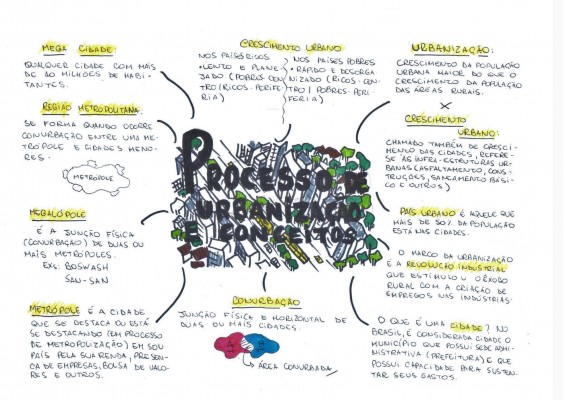 MEGA CIDADE:
QUALQUER CIDADE COM MAIS
DE 10 MILHÕES DE HABI-
TANTES.
REGIÃO METROPOLITANA:
SE FORMA QUANDO OCORRE
CONURBAÇÃO ENTRE UMA ME-
TRÓPOLE E CIDADES MENO-
RES.
METRÓPOLE
MEGALÓPOLE
É A JUNÇÃO FÍSICA
(CONURBAÇÃO) DE DUAS OU
MAIS METRÓPOLES.
EXS: BOSWASH
SAN-SAN
METRÓPOLE É A CIDADE
QUE SE DESTACA OU ESTÁ
SE DESTACANDO (EM PROCESSO
DE METROPOLIZAÇÃO) EM SEU
PAÍS PELA SUA RENDA, PRESEN-
ÇA DE EMPRESAS, BOLSA DE VALO-
RES E OUTROS.
CRESCIMENTO URBANO
NOS PAÍSES RICOS
LENTO E PLANE-
JADO (POBRES CEN-
TRO/RICOS-PERIFE-
RIA)
NOS PAÍSES POBRES
RÁPIDO E DESORGA
NIZADO (RICOS-CEN-
TRO/POBRES-PERI-
FERIA)
PROCESSO DE
URBANIZAÇÃO
E CONCEITOS
CONURBAÇÃO
JUNÇÃO FÍSICA E HORIZONTAL DE
DUAS OU MAIS CIDADES.
A B
ÁREA CONURBADA
URBANIZAÇÃO:
CRESCIMENTO DA POPULAÇÃO
URBANA MAIOR DO QUE O
CRESCIMENTO DA POPULAÇÃO
DAS ÁREAS RURAIS.
X
CRESCIMENTO
URBANO:
CHAMADO TAMBÉM DE CRESCI-
MENTO DAS CIDADES, REFERE-
SE ÀS INFRA-ESTRUTURAS UR-
BANAS (ASFALTAMENTO, CONS-
TRUÇÕES, SANEAMENTO BÁSI-
CO E OUTROS)
PAÍS URBANO É AQUELE QUE
MAIS DE 50% DA POPULAÇÃO
ESTÁ NAS CIDADES.
O MARCO DA URBANIZAÇÃO
É A REVOLUÇÃO INDUSTRIAL
QUE ESTIMULOU O ÊXODO
RURAL COM A CRIAÇÃO DE
EMPREGOS NAS INDÚSTRIAS.
O QUE É UMA CIDADE? NO
BRASIL, É CONSIDERADA CIDADE O
MUNICÍPIO QUE POSSUI SEDE ADMI-
NISTRATIVA (PREFEITURA) E QUE
POSSUI CAPACIDADE PARA SUSTEN-
TAR SEUS GASTOS.